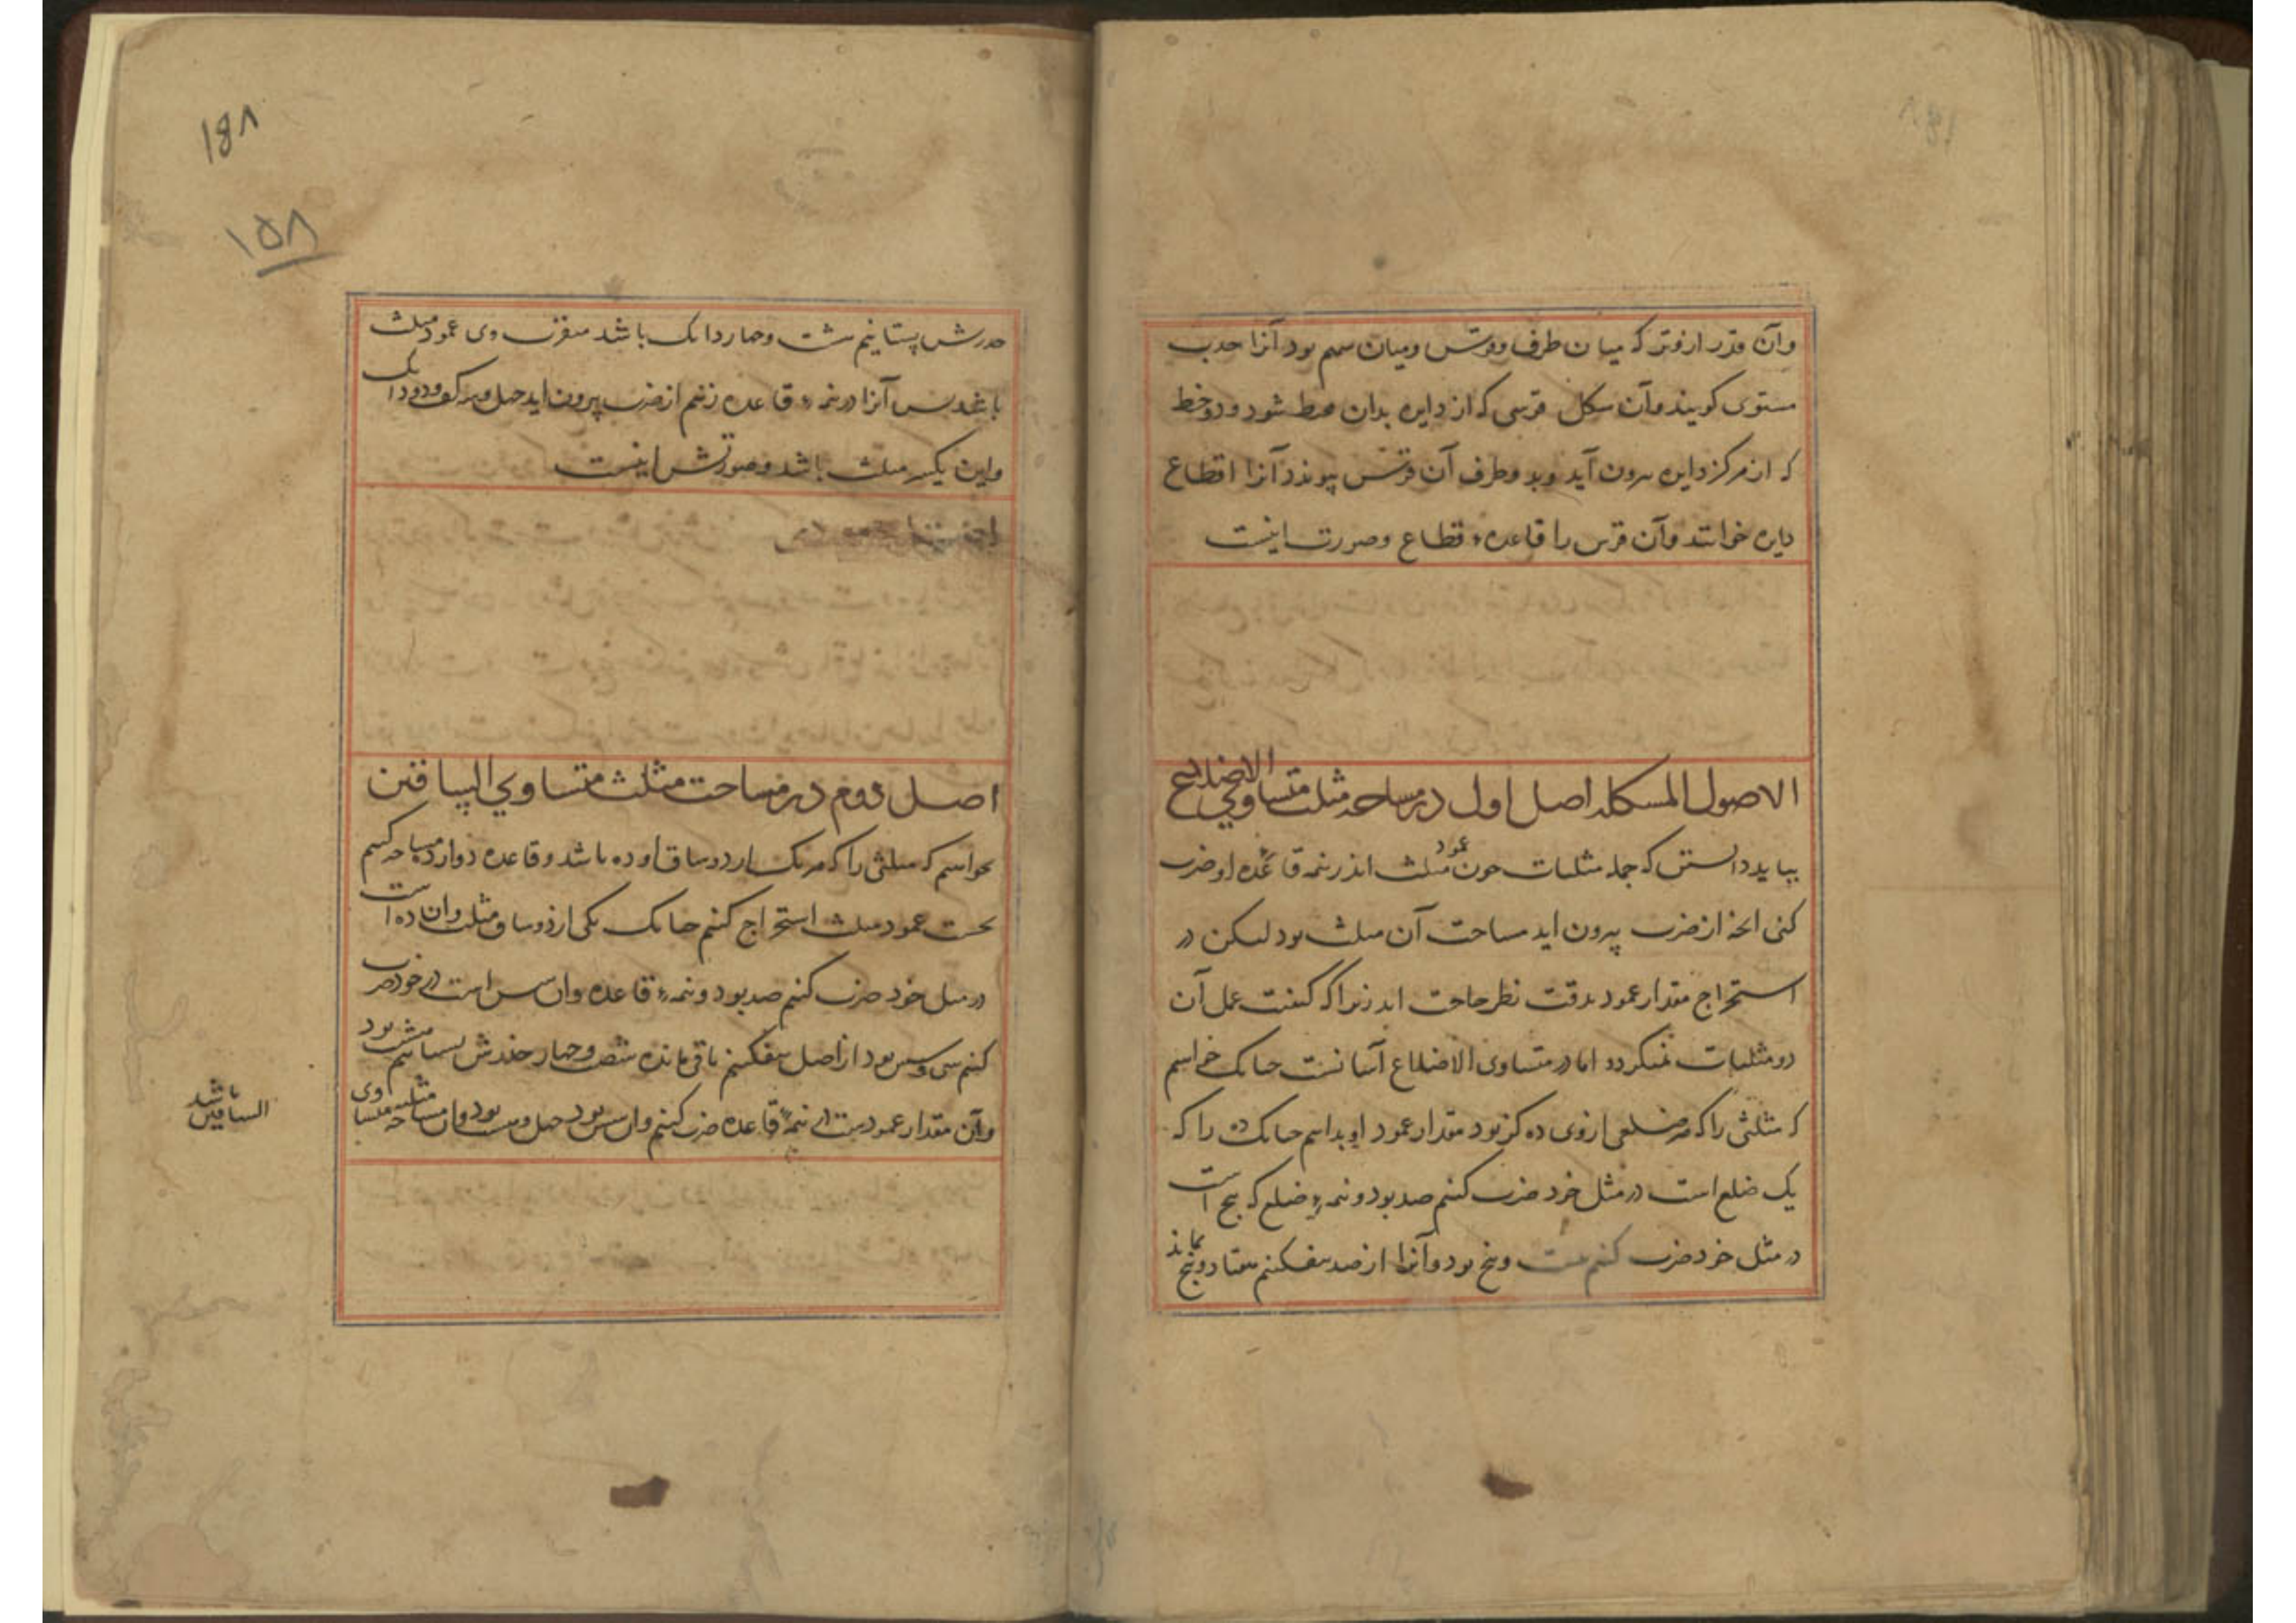 وآن قدر از وتر که میان طرف قوس ومیان سهم بود آنرا جیب
مستوی کویند وآن شکل قوسی که از دایره بدان محیط شود ودو خط
که از مرکز دایره بیرون آید وبدو طرف آن قوس پیوندد آنرا اقطاع
دایره خوانند وآن قوس را قاعدهٔ قطاع وصورت اینست
الاصول المشکله اصل اول در مساحه مثلث متساوی الاضلاع
بباید دانستن که جمله مثلثات چون عمود مثلث اندر نیمه قاعده او ضرب
کنی انچه از ضرب بیرون اید مساحت آن مثلث بود لیکن در
استخراج مقدار عمود بدقت نظر حاجت اید زیرا که کیفیت عمل آن
در مثلثات نمیکردد اما در متساوی الاضلاع آسانست چنانک خواهیم
که مثلثی را که هر ضلعی از وی ده کز بود مقدار عمود او بدانیم چنانک ده را که
یک ضلع است در مثل خود ضرب کنیم صد بود ونیمهٔ ضلع که پنج است
در مثل خود ضرب کنیم بیست وپنج بود وآنرا از صد بیفکنیم هفتاد وپنج بماند
۱۵۸
جذرش بستانیم هشت وچهار دانک باشد بتقریب وی عمود مثلث
باشد پس آنرا در نیمهٔ قاعده زنیم از ضرب بیرون اید چهل وسه کز ودو دانک
واین تکسیر مثلث باشد وصورتش اینست
اصل دوم در مساحت مثلث متساوي الساقین
خواهیم که مثلثی را که هر یک از دو ساق او ده باشد وقاعده دوازده مساحه کنیم
نخست عمود مثلث استخراج کنیم چنانک یکی از دو ساق مثلث وان ده است
در مثل خود ضرب کنیم صد بود ونیمهٔ قاعده وان شش است در خود ضرب
کنیم سی وشش بود از اصل بیفکنیم باقی مانده شصت وچهار جذرش بستانیم هشت بود
وآن مقدار عمودست در نیمهٔ قاعده ضرب کنیم وان شش بود چهل وهشت بود وان مساحه مثلث متساوی
الساقین باشد